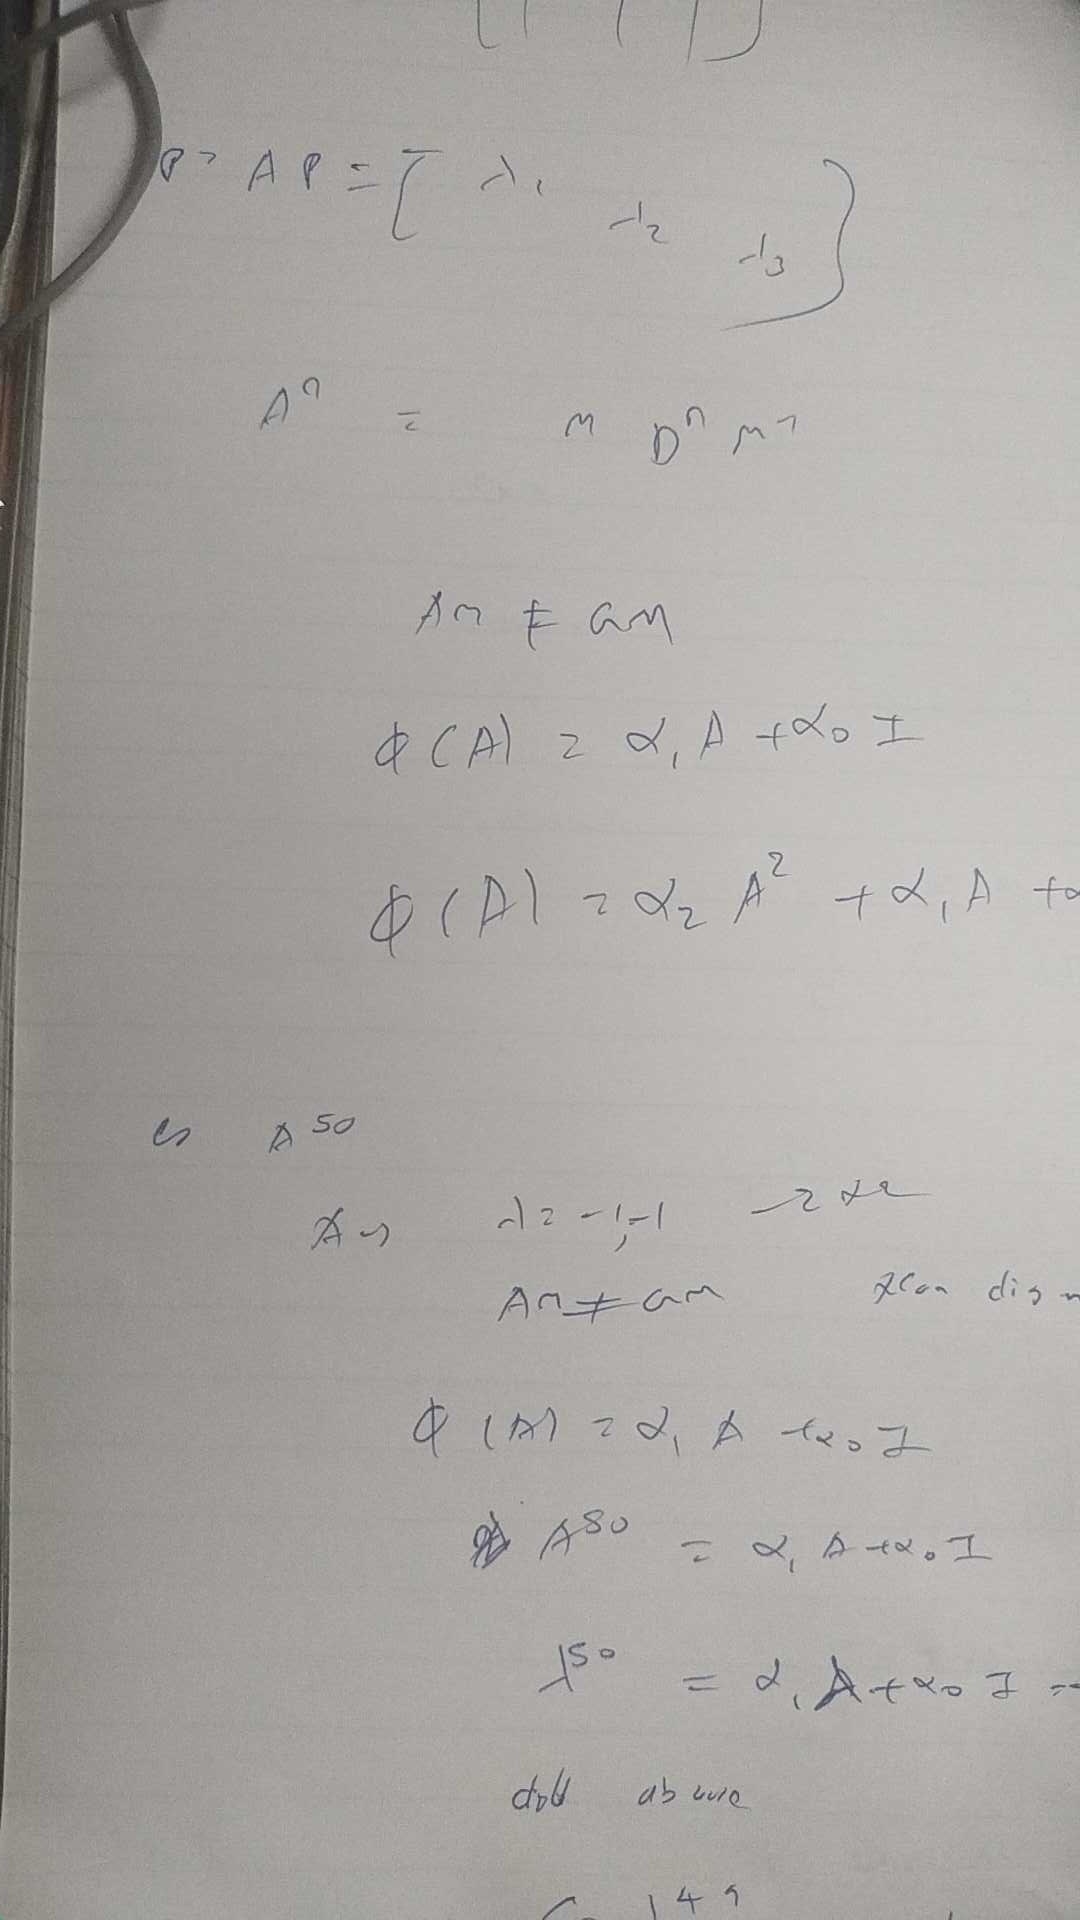 AP = [ λ₁
λ₂
λ₃ ]
Aⁿ = M Dⁿ M⁻¹
AM ≠ GM
ϕ(A) = α₁ A + α₀ I
ϕ(A) = α₂ A² + α₁ A +
A⁵⁰
λ = -1, -1
AM ≠ GM
ϕ(A) = α₁ A + α₀ I
A⁵⁰ = α₁ A + α₀ I
λ⁵⁰ = α₁ A + α₀ I
above
49